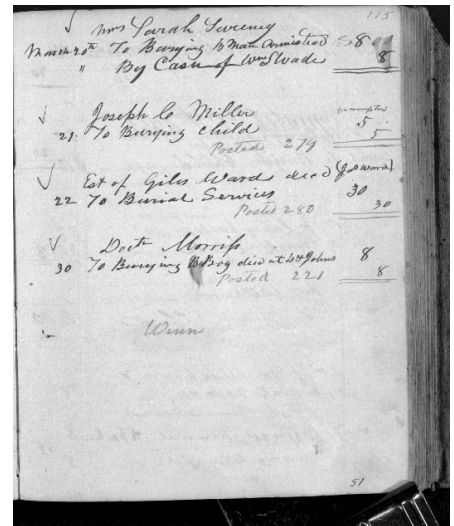 115
Mrs Sarah Sweeney
March 20th To Burying B Matn Armistead $8 00
" By Cash of Wm Slvade 8
Joseph C Miller
21 To Burying Child 5
5
Posted 279
Est of Giles Ward decd (Jas Ward)
22 To Burial Services 30
30
Posted 280
Doctr Morriss
30 To Burying B Boy died at St Johns 8
8
Posted 221
Wenn
51